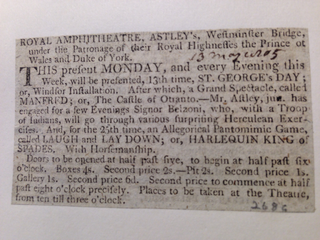 ROYAL AMPHITHEATRE, ASTLEY's, Westminster Bridge,
under the Patronage of their Royal Highnesses the Prince of
Wales and Duke of York. 13 May 1805
THIS present MONDAY, and every Evening this
Week, will be presented, 13th time, ST. GEORGE's DAY;
or, Windsor Installation. After which, a Grand Spectacle, called
MANFRED; or, The Castle of Otranto.—Mr. Astley, jun. has
engaged for a few Evenings Signor Belzoni, who, with a Troop
of Indians, will go through various surprising Herculean Exer-
cises. And, for the 25th time, an Allegorical Pantomimic Game,
called LAUGH and LAY DOWN; or, HARLEQUIN KING of
SPADES. With Horsemanship.
Doors to be opened at half past five, to begin at half past six
o'clock. Boxes 4s. Second price 2s.—Pit 2s. Second price 1s.
Gallery 1s. Second price 6d. Second price to commence at half
past eight o'clock precisely. Places to be taken at the Theatre,
from ten till three o'clock.